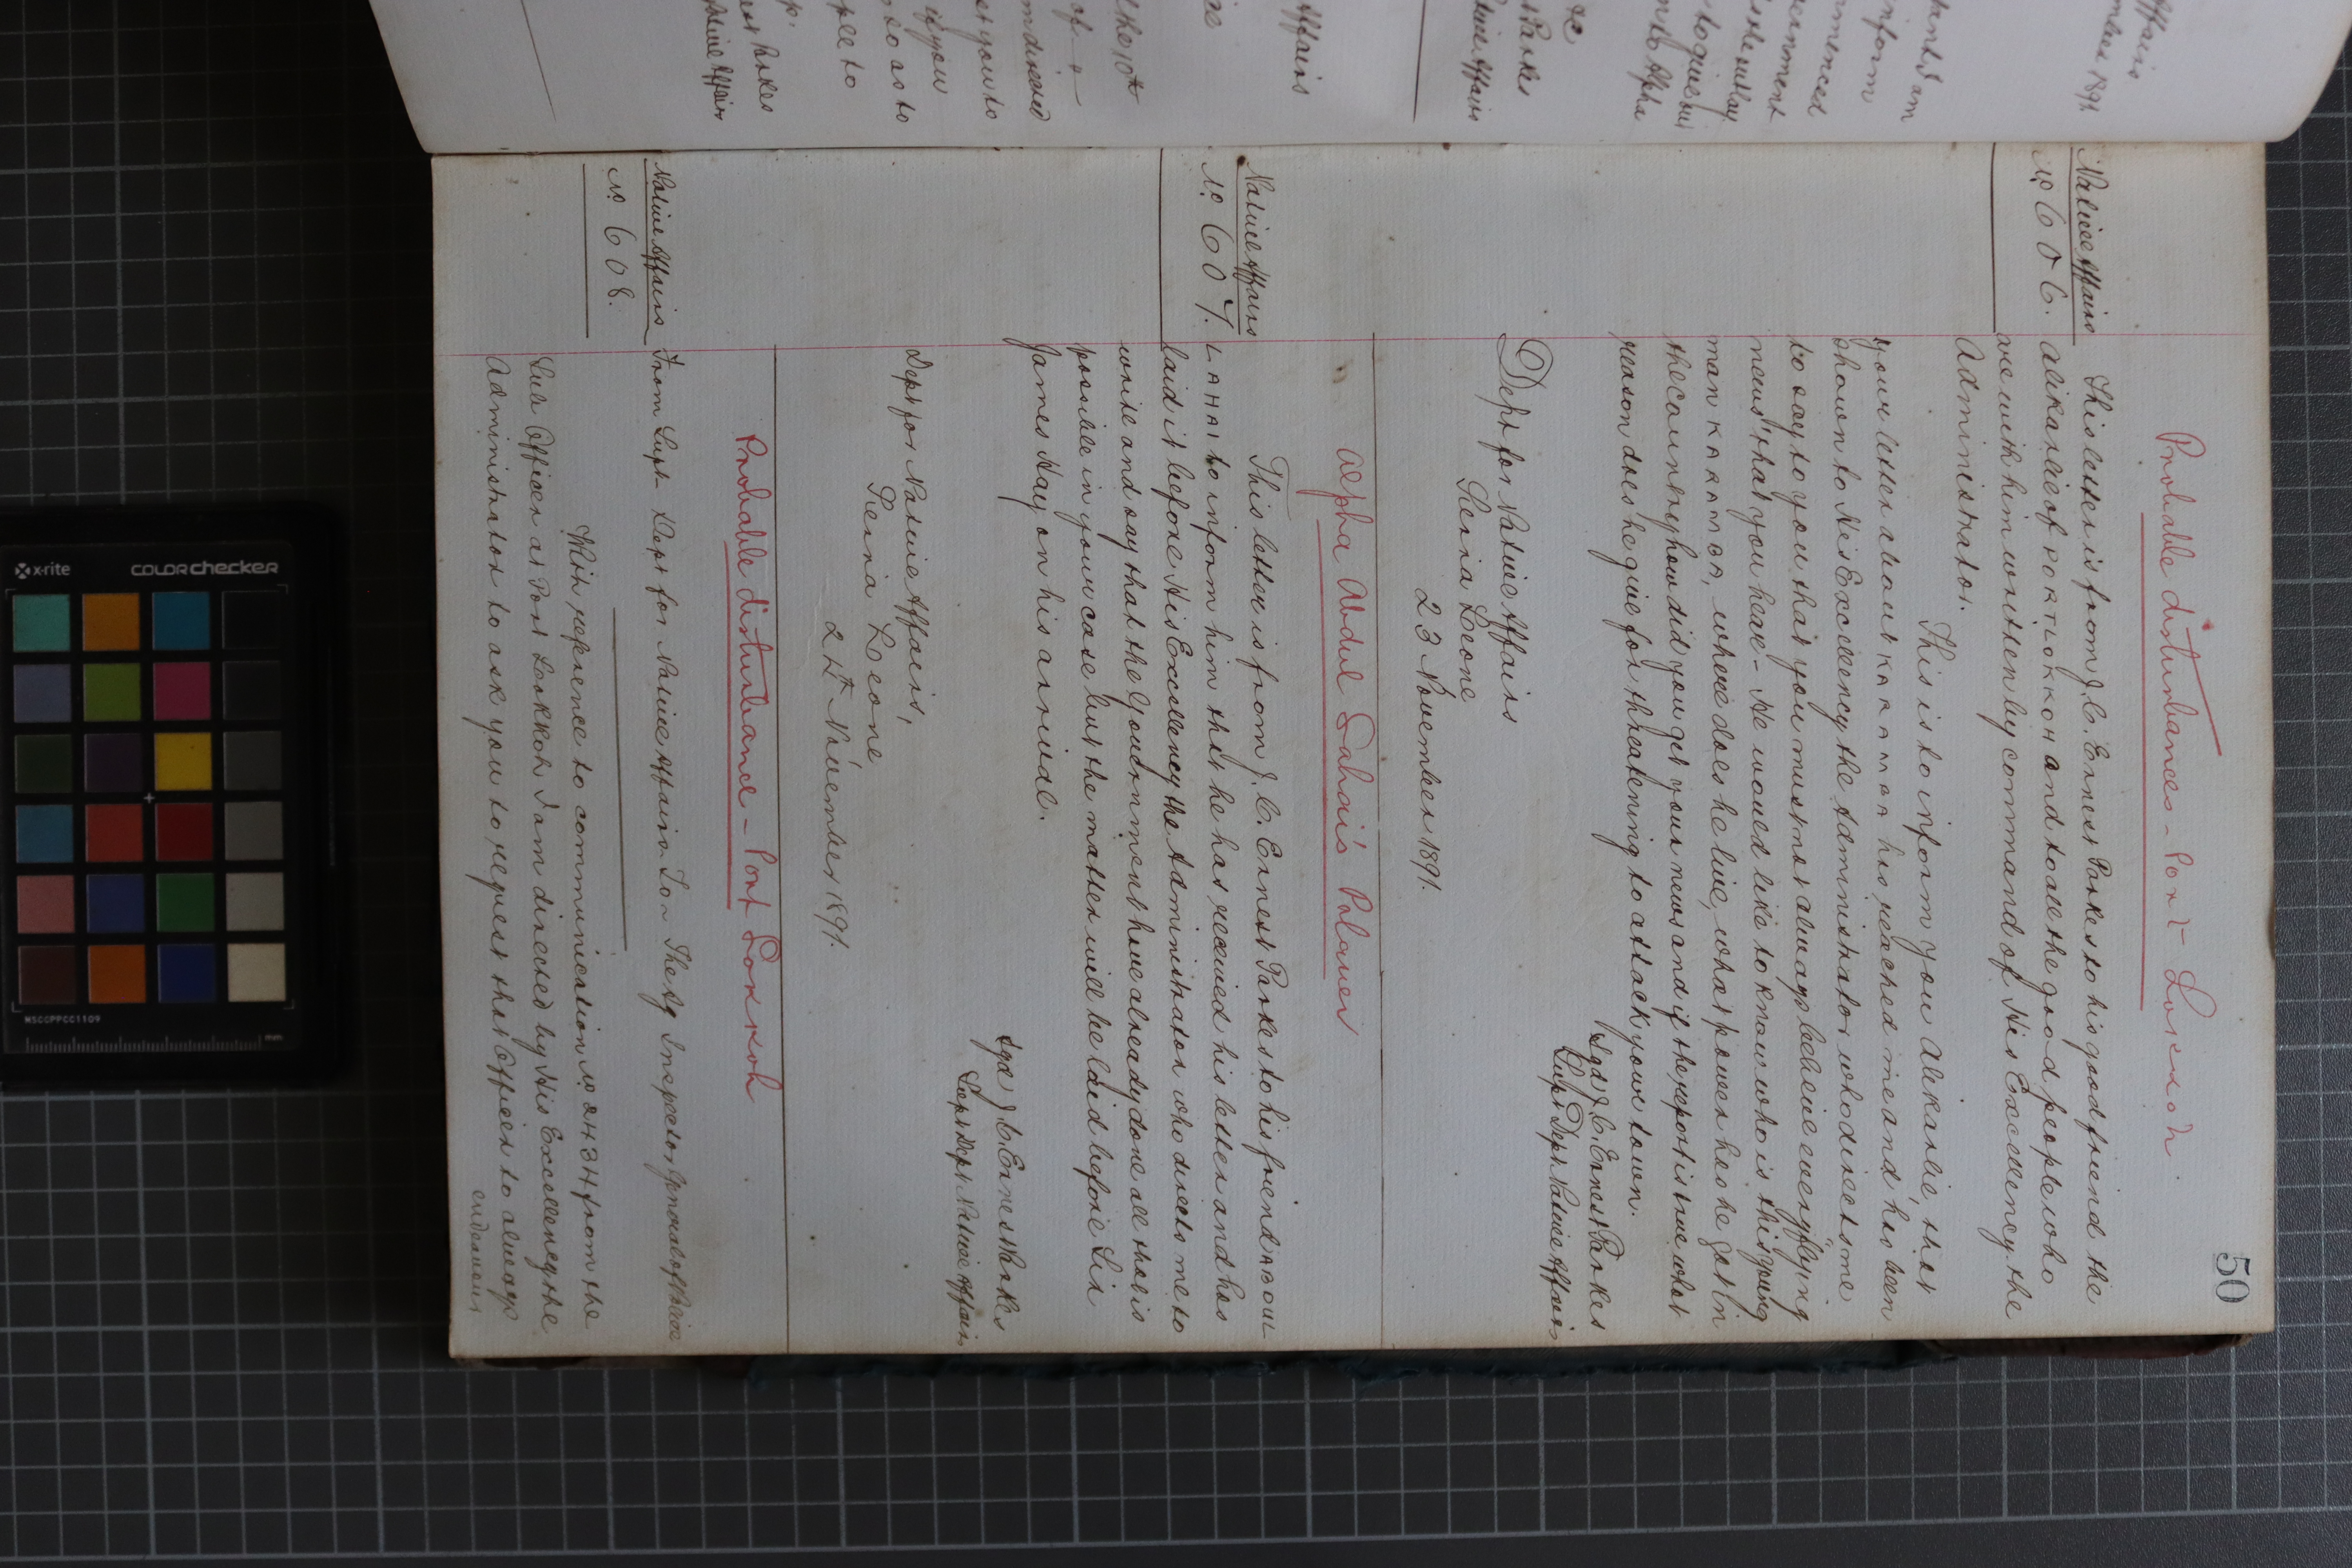 50
Probable disturbances - Port Lokkoh.
Native Affairs
No 606.
This letter is from J. C. Ernest Parkes to his good friend the
Alikarlie of PORTLOKKOH and to all the good people who
are with him written by command of His Excellency the
Administrator.
This is to inform you Alikarlie, that
your letter about KARAMOR has reached me and has been
shown to His Excellency the Administrator who directs me
to say to you that you must not always believe every flying
news that you hear - He would like to know who is this young
man KARAMOR, where does he live, what power has he got in
the country, how did you get your news and if the report is true what
reason does he give for threatening to attack your town.
Sgd J. C. Ernest Parkes
Supt Dept Native Affairs
Dept for Native Affairs
Sierra Leone
23 November 1891.
Alpha Abdul Lahai's Palaver
Native Affairs
No 607.
This letter is from J. C. Ernest Parkes to his friend ABDUL
LAHAI to inform him that he has received his letter and has
laid it before His Excellency the Administrator who directs me to
write and say that the Government have already done all that is
possible in your case but the matter will be laid before Sir
James Hay on his arrival.
Sgd J. C. Ernest Parkes
Supt Dept Native Affairs
Dept for Native Affairs,
Sierra Leone
24th November 1891.
Probable disturbance - Port Lokkoh
Native Affairs
No 608.
From Supt Dept for Native Affairs To The Ag Inspector General of Police
With reference to communication No from the
Sub Officer at Port Lokkoh I am directed by His Excellency the
Administrator to ask you to request that Officer to always
endeavour
Affairs
1891
I am
inform
commenced
Government
the outlay
to give
to Alpha
&c
Parkes
Native Affairs
Affairs
the 10th
of a
am directed
you to
if you
so as to
to
Parkes
Native Affairs
x-rite
colorchecker
MSCCPPCC1109
mm